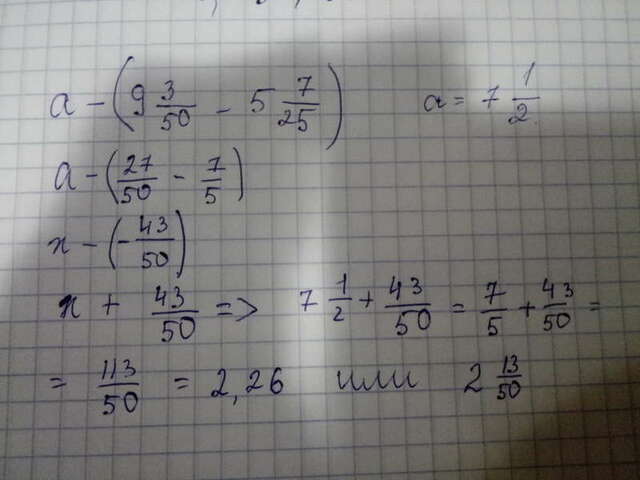 a - (9 3/50 - 5 7/25) a = 7 1/2
a - (27/50 - 7/5)
x - (-43/50)
x + 43/50 => 7 1/2 + 43/50 = 7/5 + 43/50 =
= 113/50 = 2,26 или 2 13/50